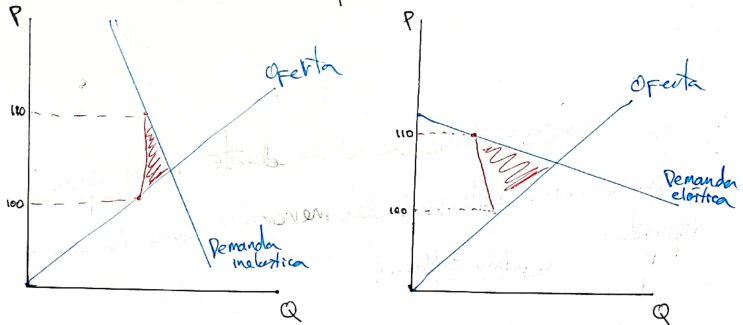 P
Oferta
100
Demanda
inelastica
Q
P
Oferta
110
100
Demanda
elástica
Q